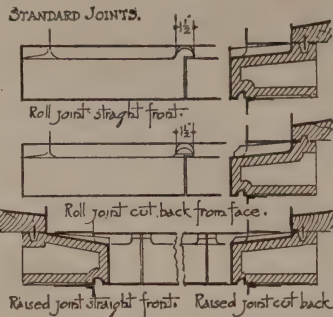 STANDARD JOINTS.
1½"
Roll joint straght front.
1½"
Roll joint cut back from face.
Raised joint straight front. Raised joint cut back